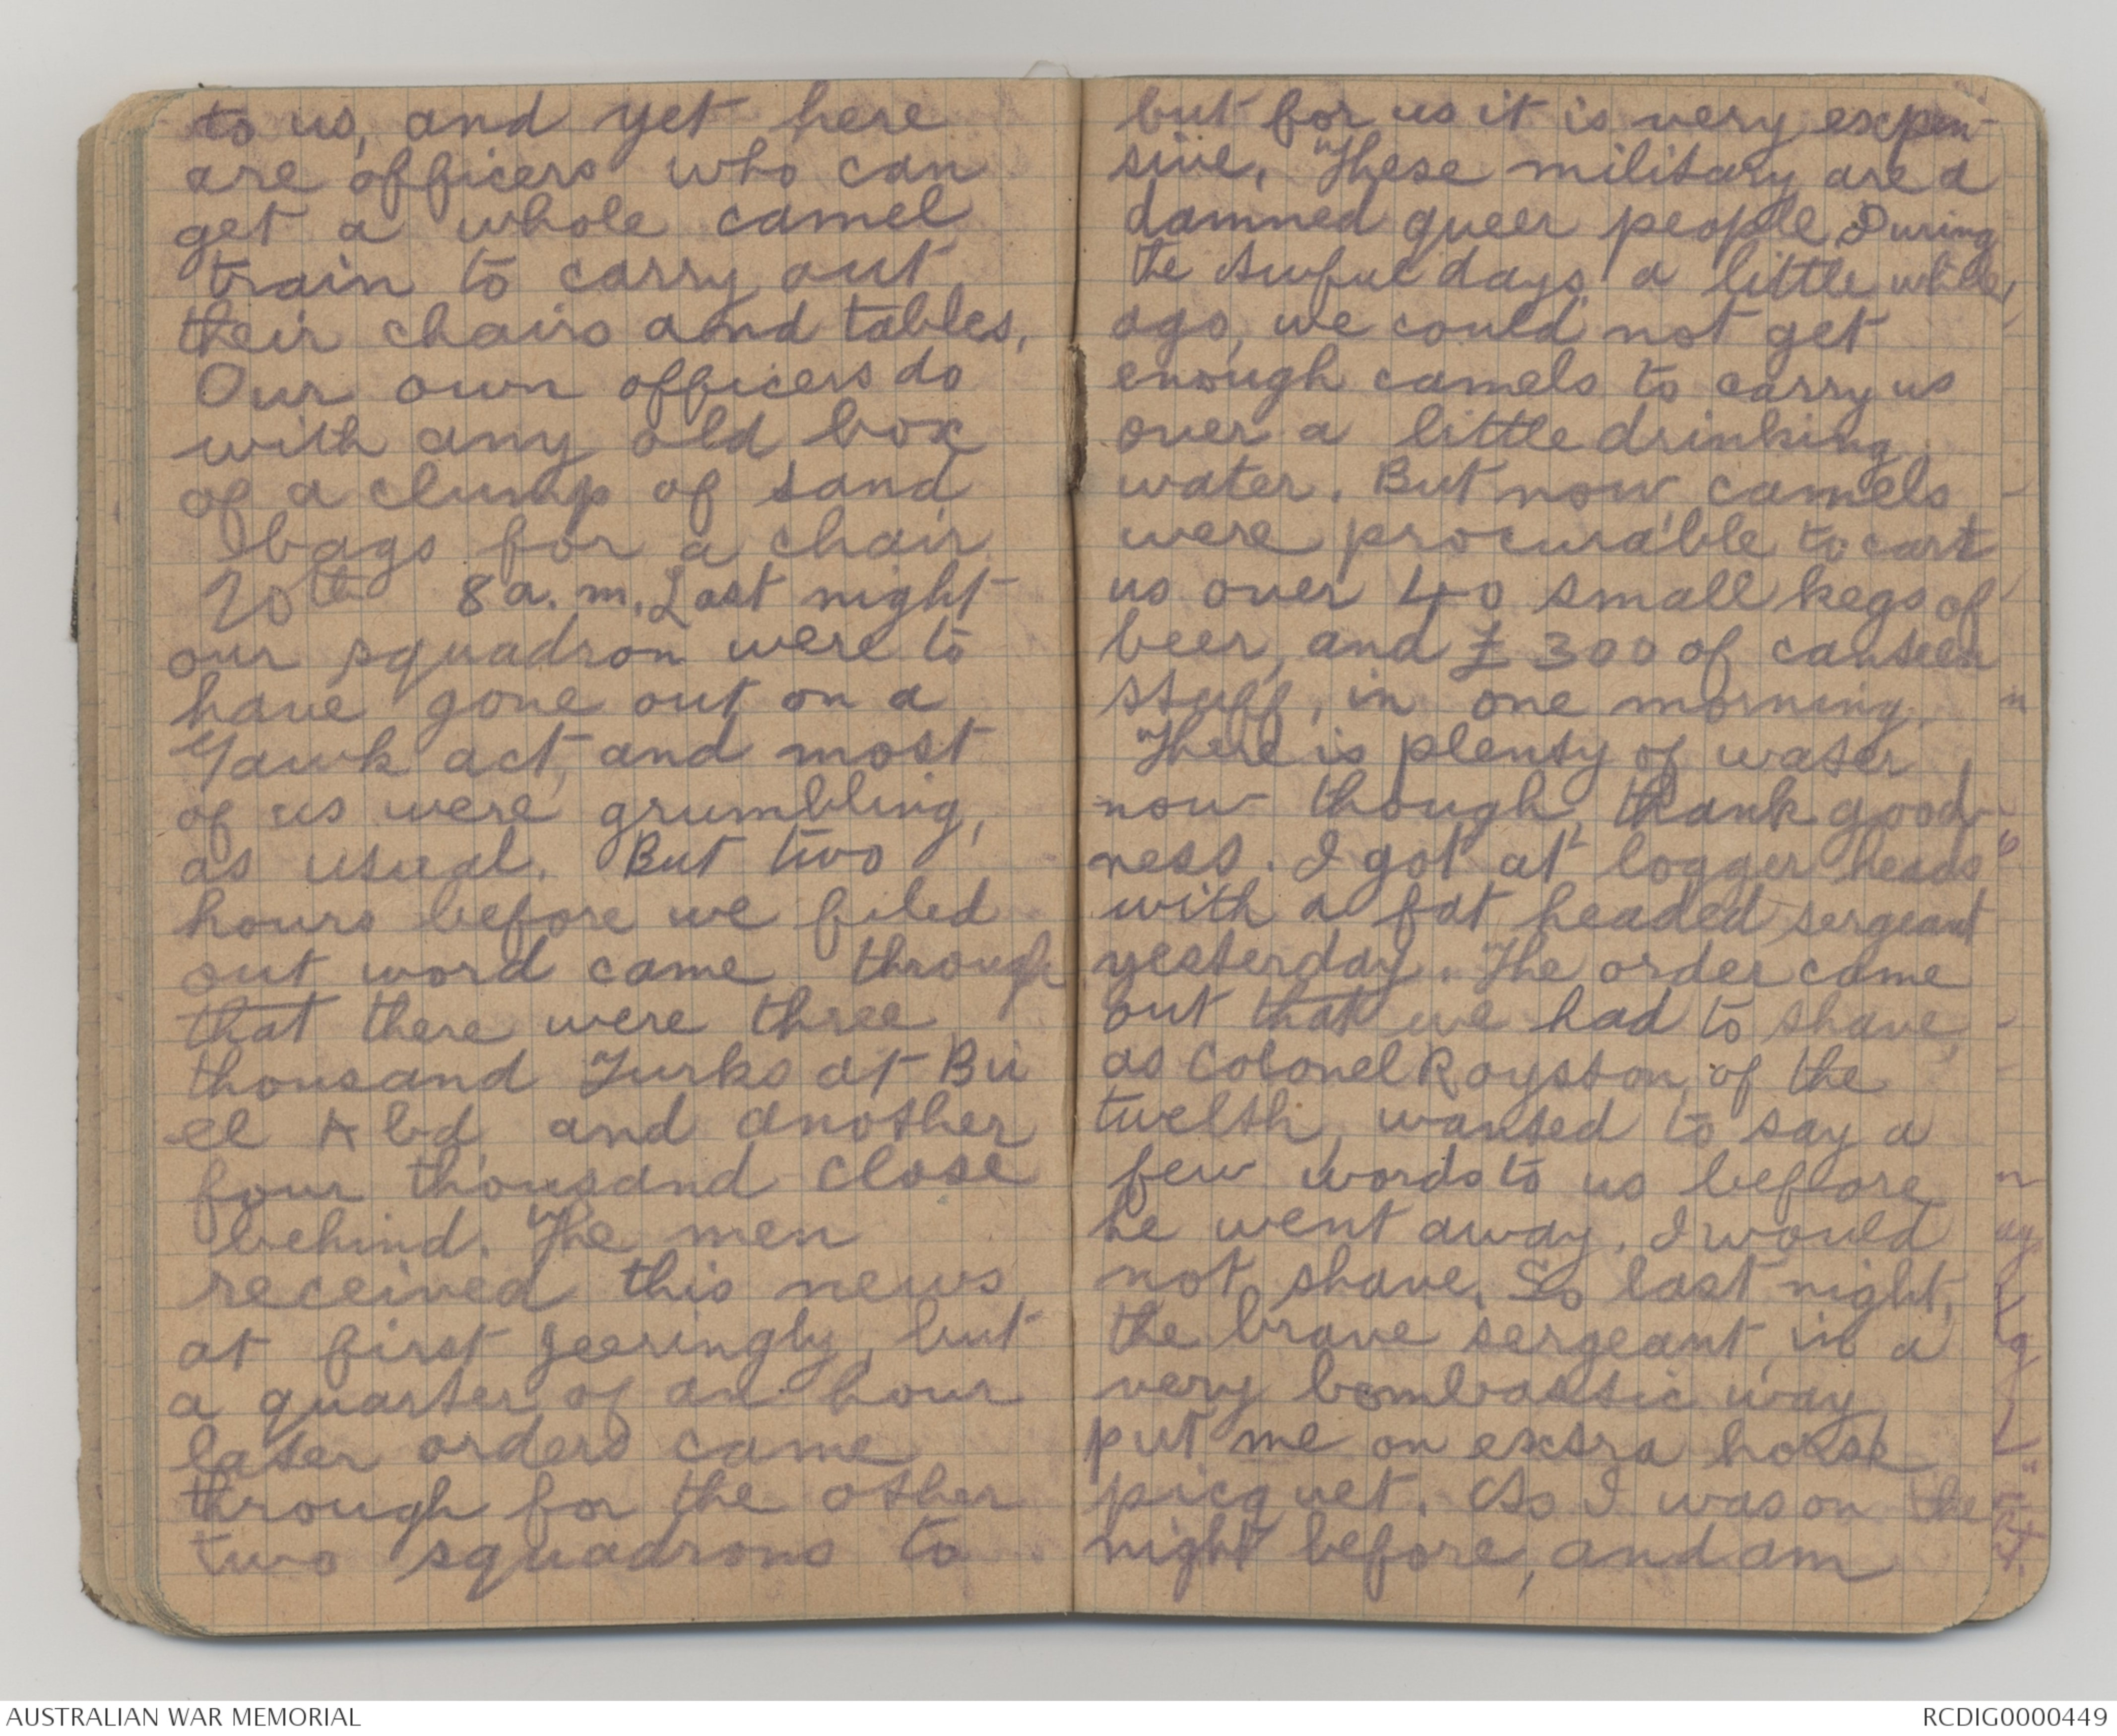 to us, and yet here
are officers who can
get a whole camel
train to carry out
their chairs and tables.
Our own officers do
with any old box
of a clump of sand
bags for a chair
20th 8 a.m. Last night
our squadron were to
have gone out on a
Gawk act, and most
of us were grumbling,
as usual. But two
hours before we filed
out word came through
that there were three
thousand Turks at Bir
el Abd and another
four thousand close
behind. The men
received this news
at first jeeringly, but
a quarter of an hour
later orders came
through for the other
two squadrons to
but for us it is very expen-
sive. These military are a
damned queer people. During
the awful days a little while
ago, we could not get
enough camels to carry us
over a little drinking
water. But now camels
were procurable to cart
us over 40 small kegs of
beer, and £300 of canteen
stuff, in one morning.
There is plenty of water
now though, thank good-
ness. I got at logger heads
with a fat headed sergeant
yesterday. The order came
out that we had to shave,
as Colonel Royston of the
twelth, wanted to say a
few words to us before
he went away. I would
not shave. So last night,
the brave sergeant in a
very bombastic way
put me on extra horse
picquet. As I was on the
night before, and am
AUSTRALIAN WAR MEMORIAL
RCDIG0000449